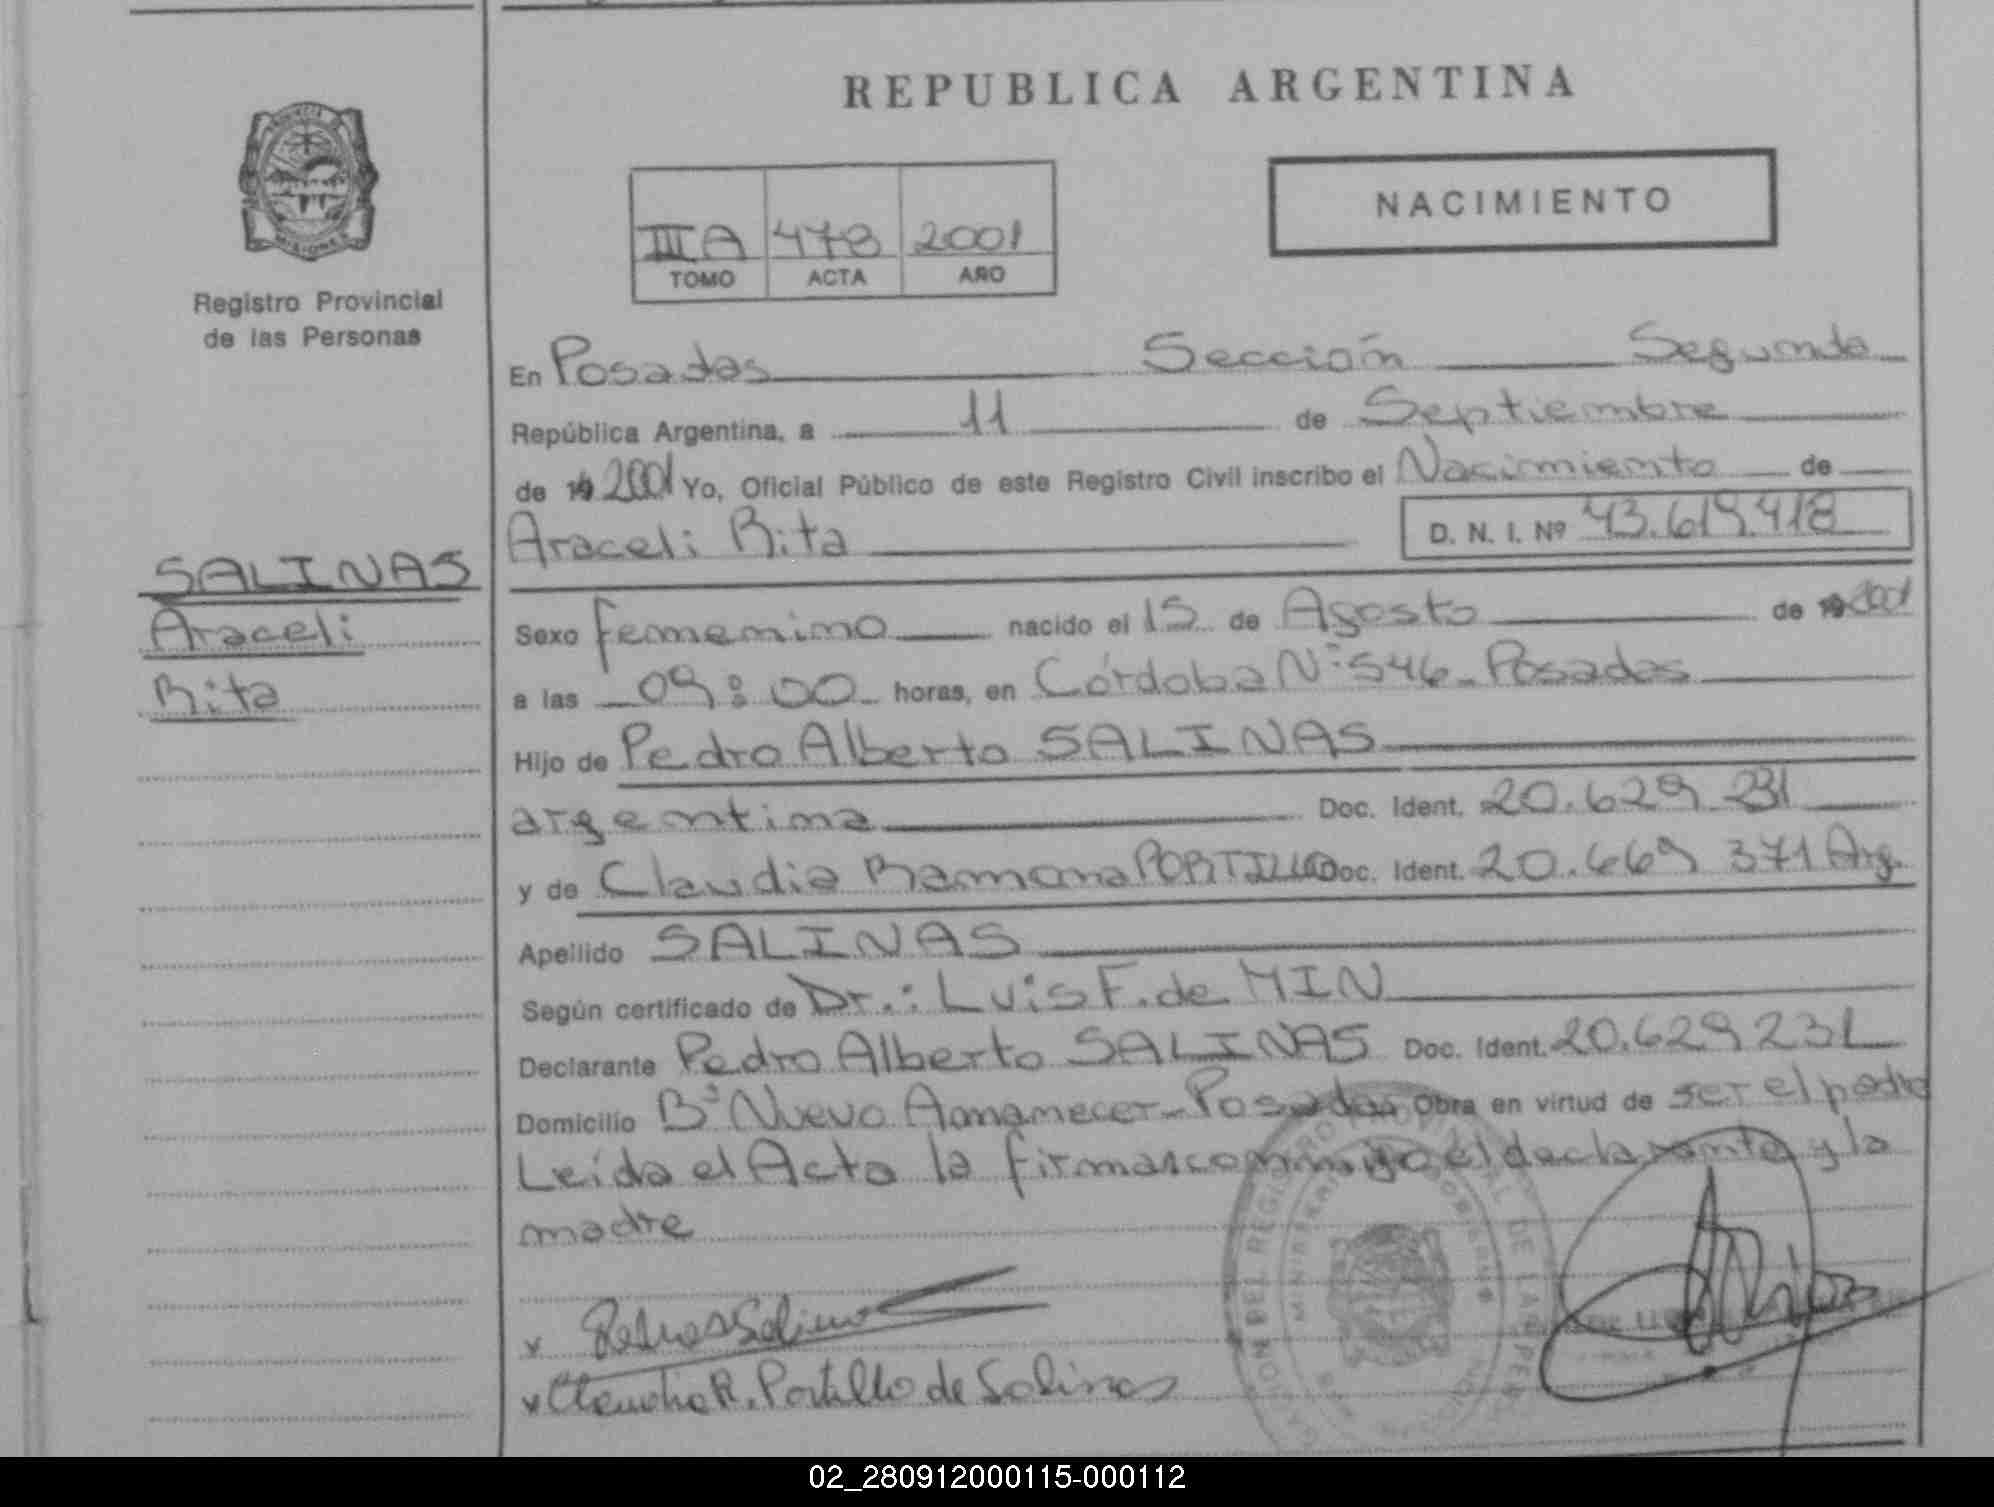 REPUBLICA ARGENTINA
NACIMIENTO
IIIA 478 2001
TOMO ACTA AÑO
Registro Provincial
de las Personas
En Posadas Sección Segunda
República Argentina, a 11 de Septiembre
de 19 2001 Yo, Oficial Público de este Registro Civil inscribo el Nacimiento de
Araceli Rita D. N. I. Nº 43.619.418
SALINAS
Araceli
Rita
Sexo femenino nacido el 15 de Agosto de 19 2001
a las 09:00 horas, en Córdoba Nº 546 - Posadas
Hijo de Pedro Alberto SALINAS
argentina Doc. Ident. 20.629 231
y de Claudia Ramona PORTILLO Doc. Ident. 20.669 371 Arg.
Apellido SALINAS
Según certificado de Dr.: Luis F. de MIN
Declarante Pedro Alberto SALINAS Doc. Ident. 20.629 231
Domicilio Bº Nuevo Amanecer - Posadas Obra en virtud de ser el padre
Leída el Acta la firman conmigo el declarante y la
madre
Claudia R. Portillo de Salinas
PROVINCIA DE
MISIONES
DEL REGISTRO PROVINCIAL DE LAS PER
MINISTERIO GOBIERNO
02_280912000115-000112